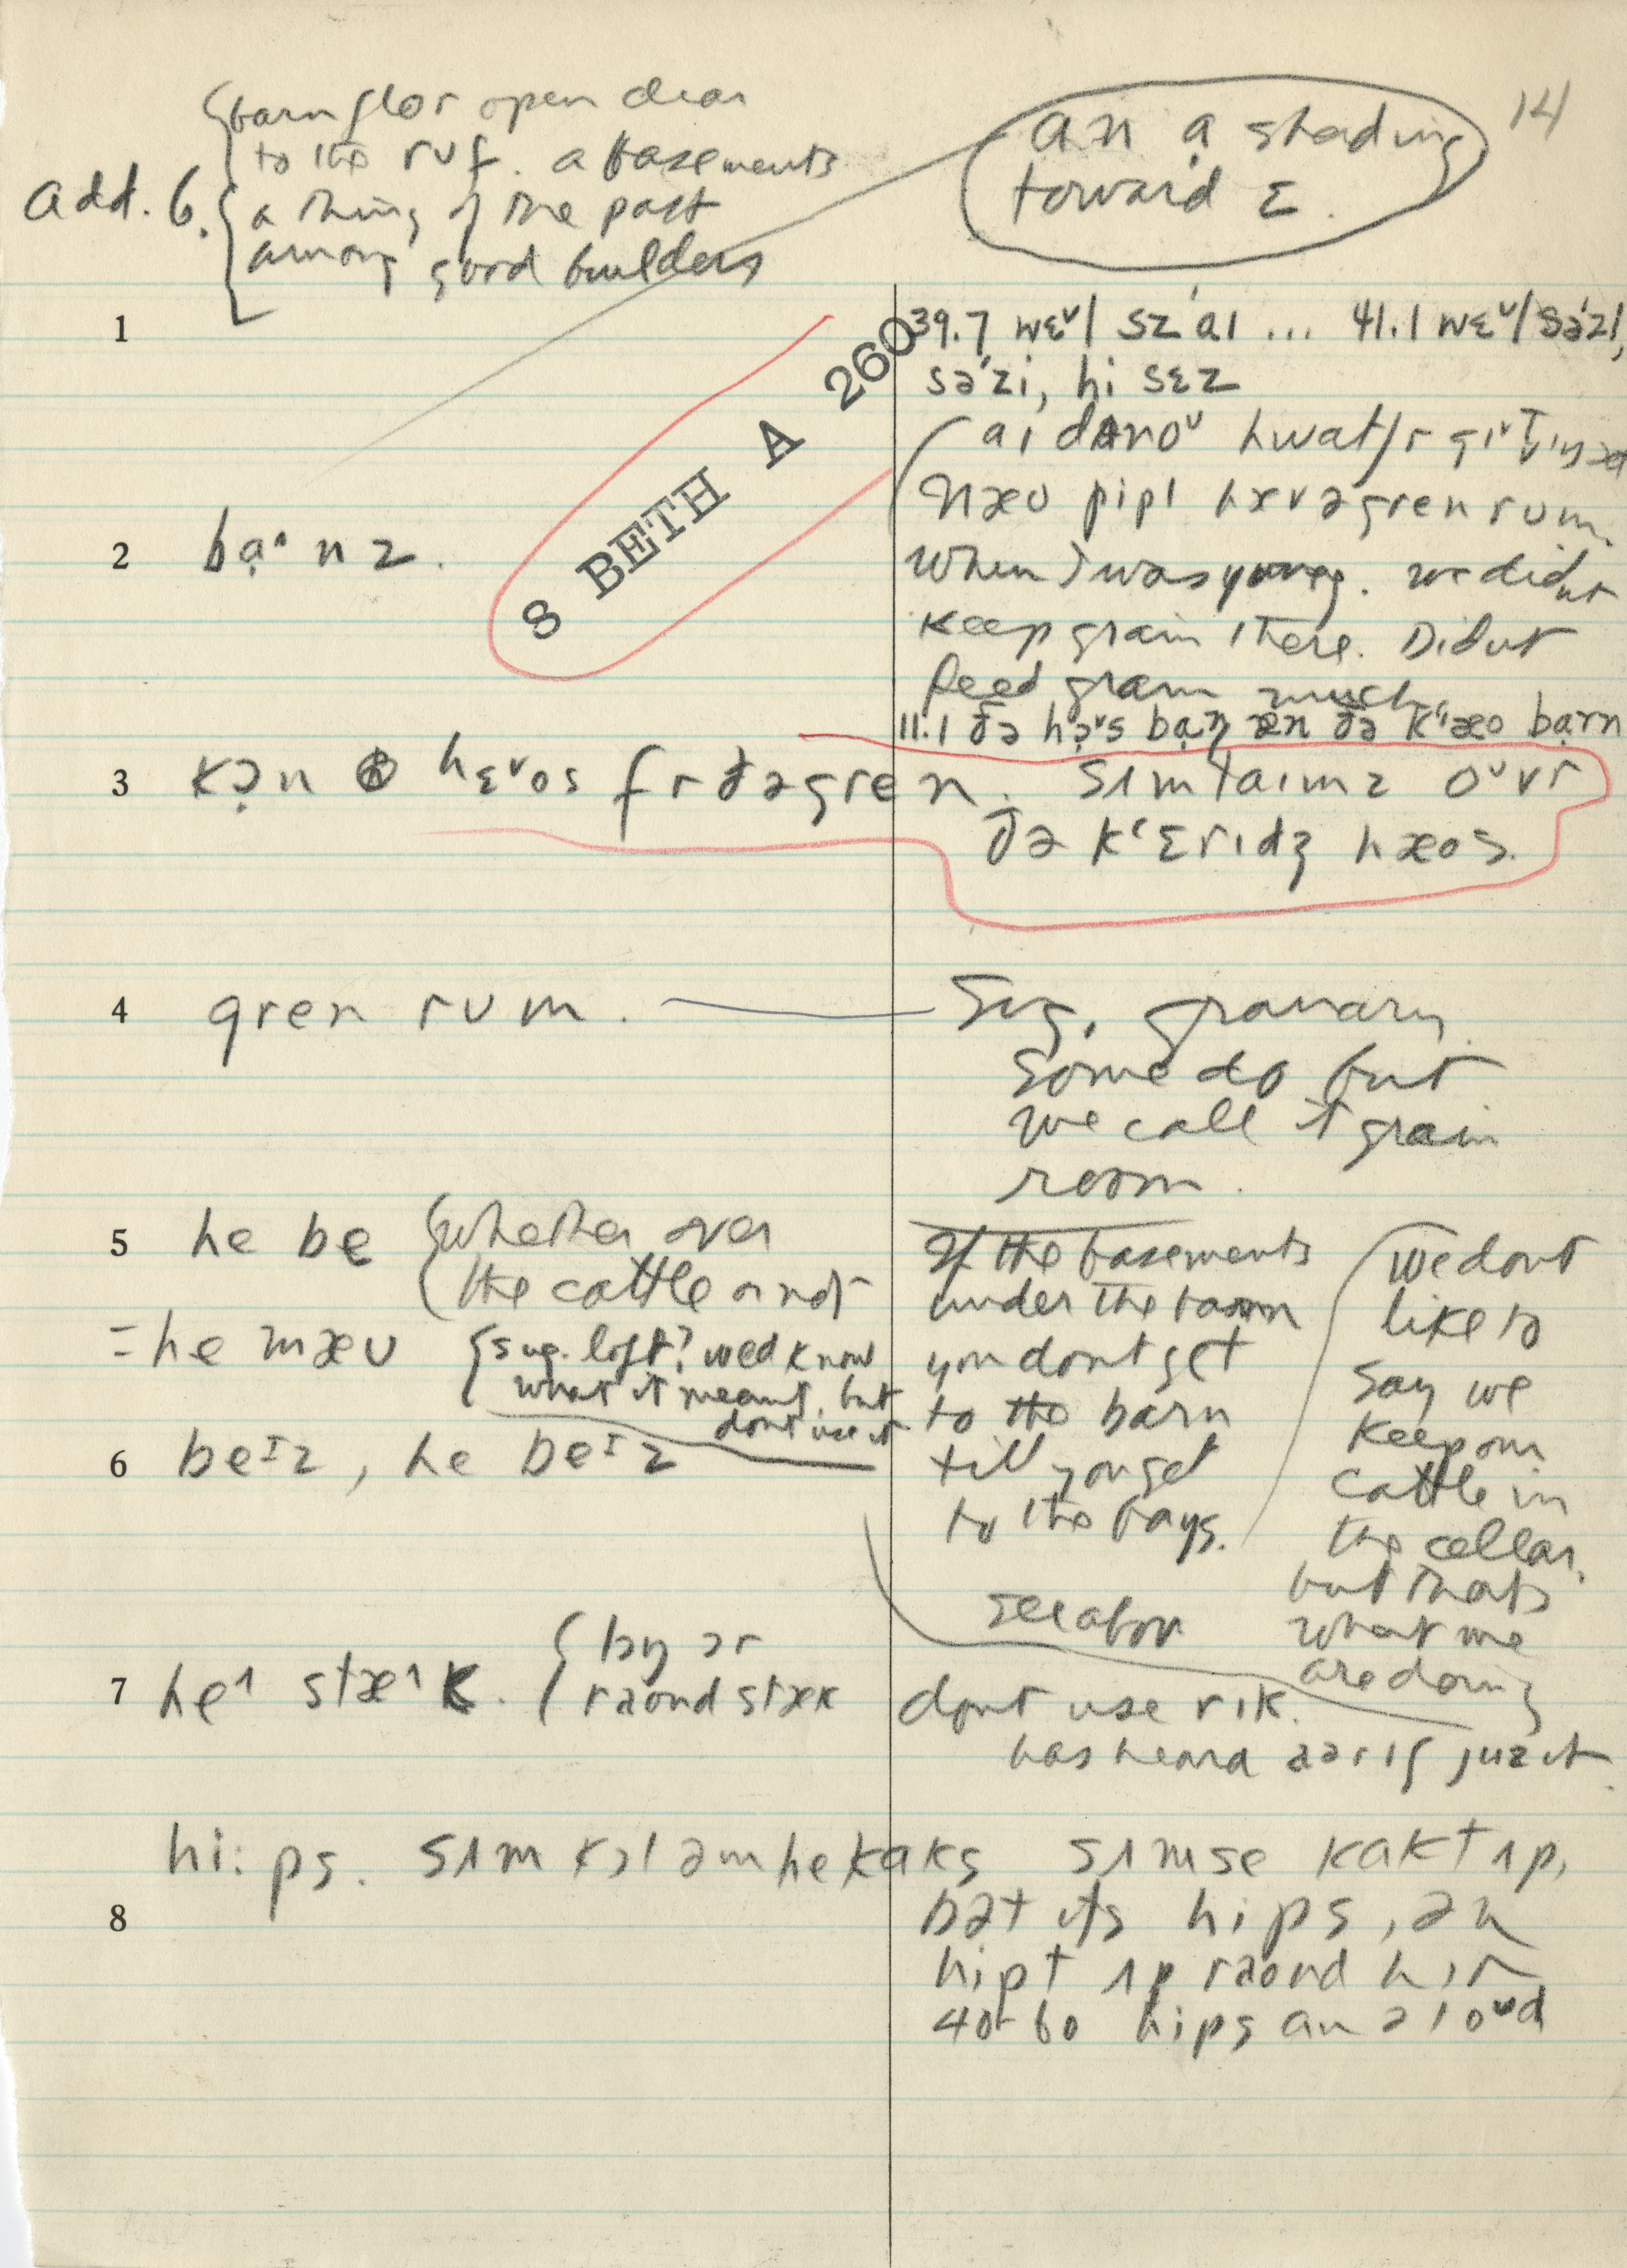 14
an ạ shading
toward ε.
Add. 6.
barn flor open clear
to the ruf. a basements
a thing of the past
among good builders
1
39.7 wɛᵛl sz'aɪ ... 41.1 wɛᵛl sə'zɪ,
sə'zi, hi sɛz
8 BETH A 260
aɪ dʌnoᵛ
næʊ pipl hævə gren rum.
2 bạ˄nz.
When I was young. we didnt
keep grain there. Didnt
feed grain much.
11.1 ðə hə̣ᵛs bạn æn ðə k'æo bạrn
3 kə̣n hɛᵛos fr ðə gren. sʌmtaɪmz oᵛvr
ðə k'ɛrɪdʒ hæos.
4 gren rum. — Sug. granary.
Some do but
we call it grain
room.
5 he be
whether over
the cattle or not
= he mæʊ
sug. loft? wed know
what it meant, but
dont use it
6 beɪz, he beɪz
If the basements
under the barn
you dont get
to the barn
till you get
to the bays.
We dont
like to
say we
keep our
cattle in
the cellar,
but thats
what we
are doing
see abov
7 he˄ stæ˄k.
raond stæk
dont use rɪk.
has heard aɪrɪʃ juz it.
8 hi:ps. sʌm kɔl əm hekaks sʌm se kakt ʌp,
bət its hips, ən
hipt ʌp raond hɪr
40-60 hips an ə loᵛd